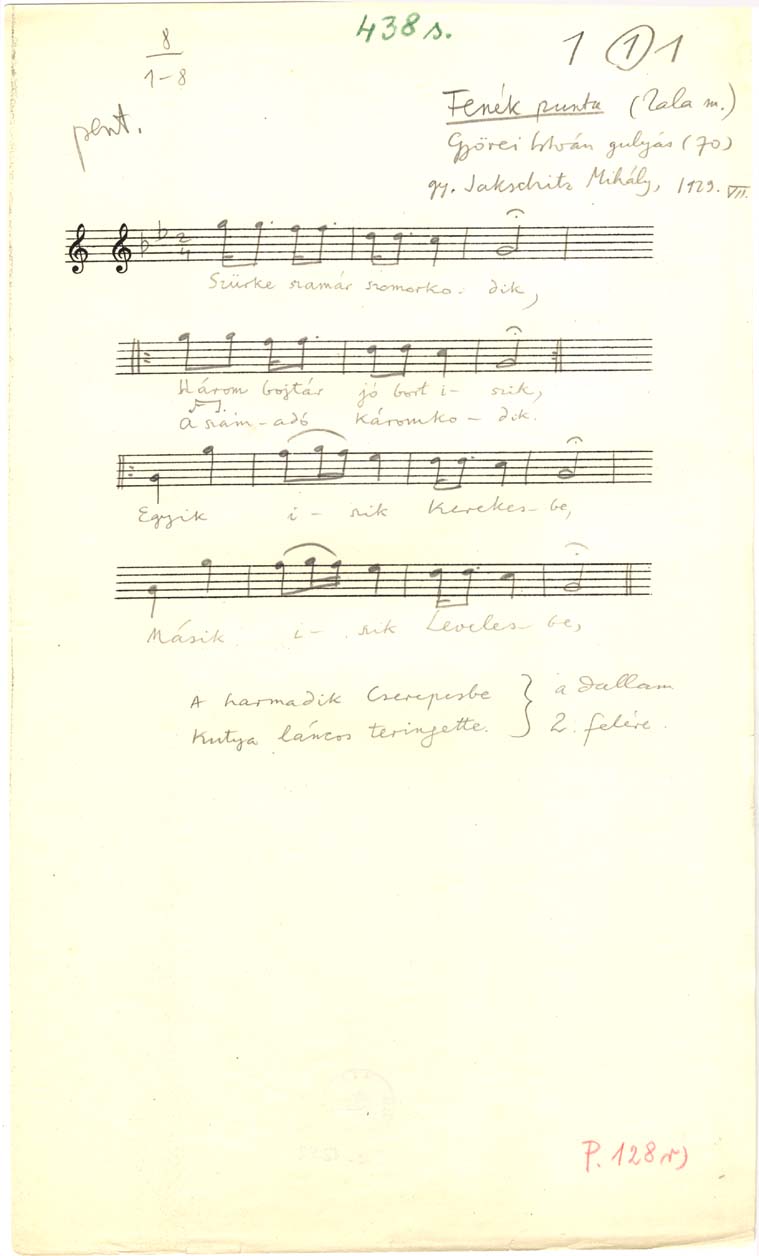 438 s.
8
1–8
1 1 1
pent.
Fenék puszta (Zala m.)
Györei István gulyás (70)
gy. Jakschitz Mihály, 1929. VII.
2
4
Szürke szamár szomorko- dik,
Három bojtár jó bort i- szik,
A szám-adó káromko- dik.
Egyik i- szik Kerekes-be,
Másik i- szik Leveles-be,
A harmadik Cserepesbe } a dallam
Kutya láncos teringette. } 2. felére.
P. 128 r)